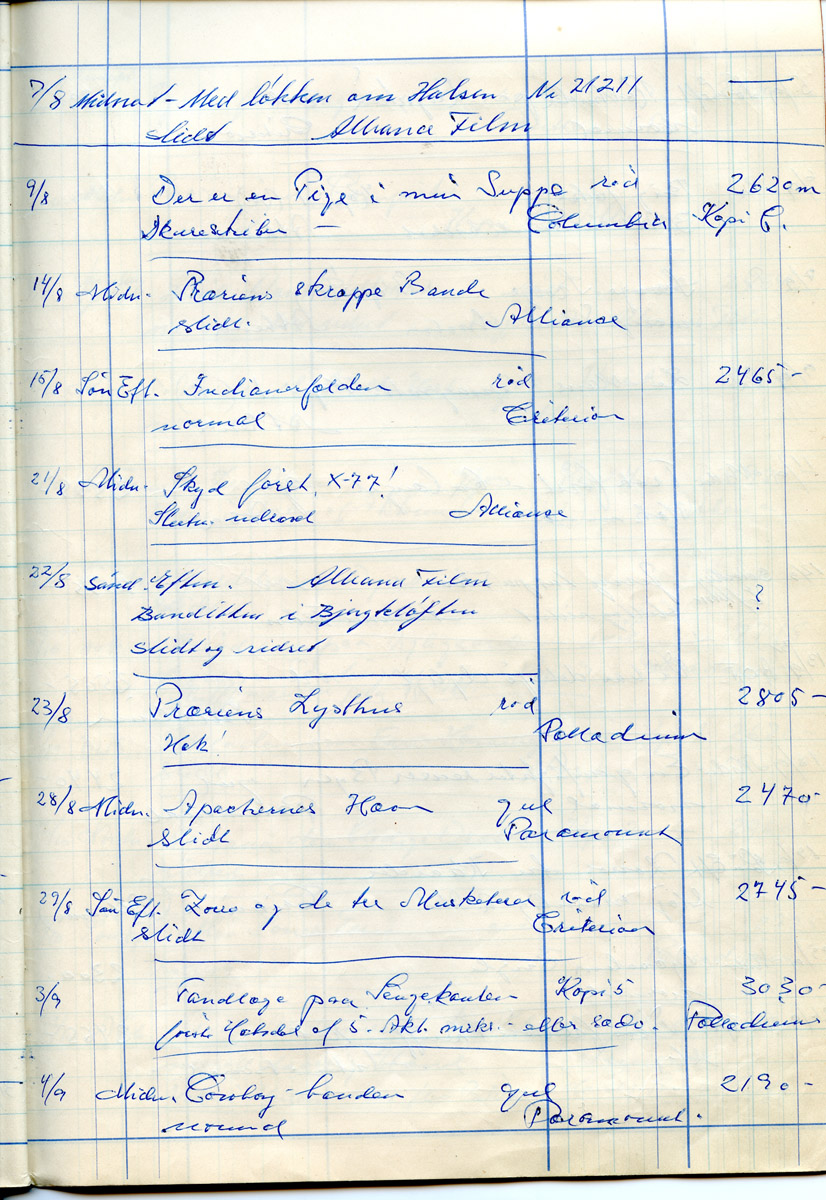 7/8 Midnat - Med løkken om Halsen No 21211 —
slidt Alliance Film
9/8 Der er en Pige i min Suppe rød 2620 m
Skurestriber — Columbia Kopi 6.
14/8 Midn. Præriens skrappe Bande
slidt. Alliance
15/8 Søn Eft. Indianerfælden rød 2465 -
normal Criterion
21/8 Midn. Skyd først, X-77!
Alliance
22/8 Sønd. Eftm. Alliance Film
Banditten i Bjergkløften ?
slidt og ridset
23/8 Præriens Lysthus rød 2805 -
Hak! Palladium
28/8 Midn. Apachernes Hævn gul 2470 -
slidt Paramount
29/8 Søn Eft. Zorro og de tre Musketerer rød 2745 -
slidt Criterion
3/9 Tandlæge paa Sengekanten Kopi 5 3030 -
første af 5. Akt. mrk. - eller Palladium
4/9 Midn. Cowboy-banden gul 2190 -
normal Paramount.